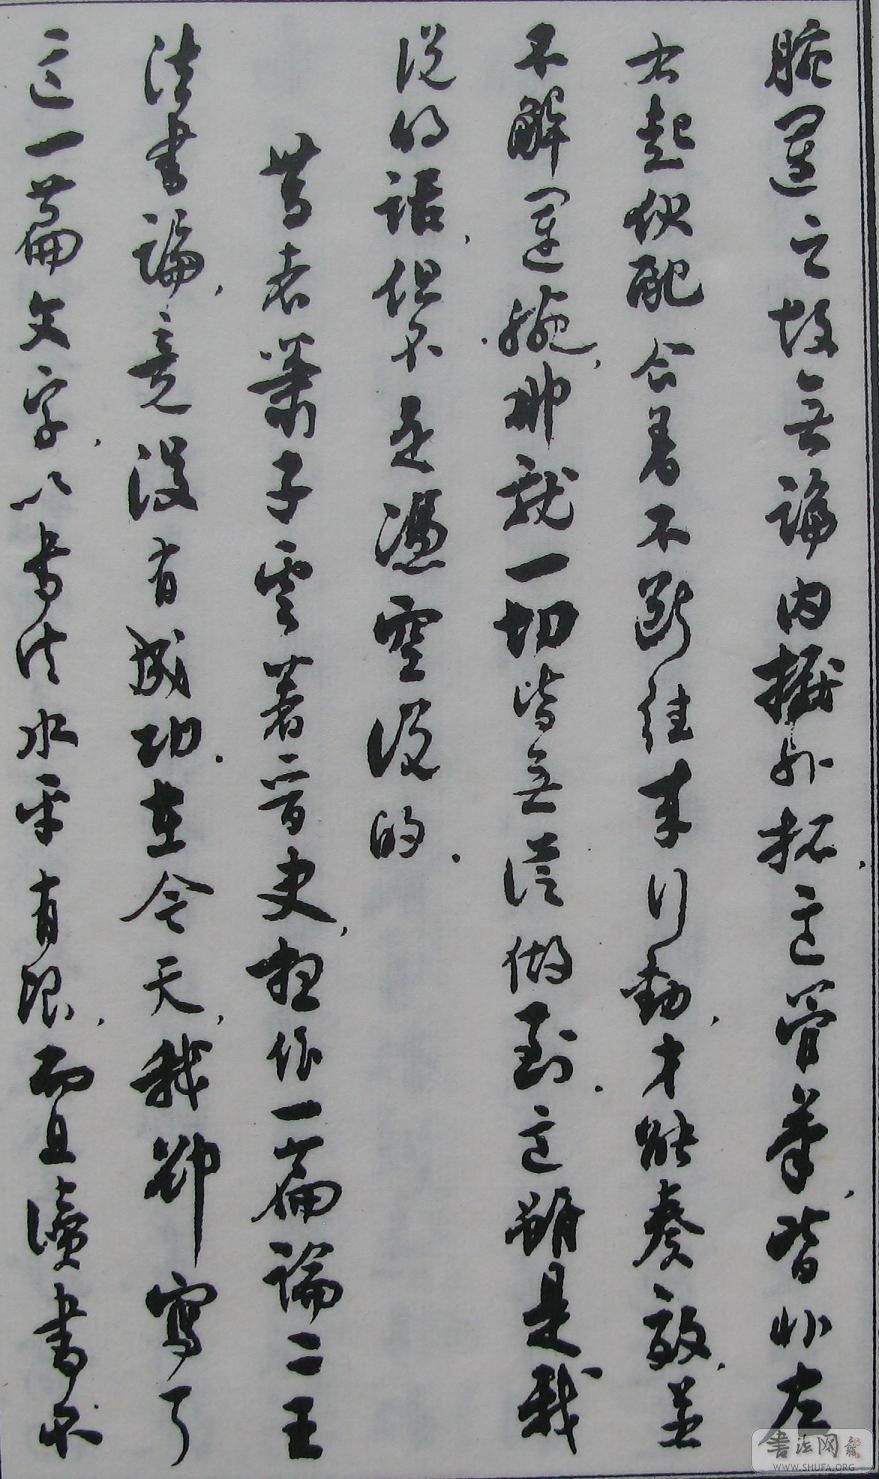 腕運之故無論內擫外拓,這管筆,皆非左
右起伏配合着不斷往來行動,才能奏效,若
不解運腕,那就一切皆無從做到.這雖是我
說的話,但不是憑空說的.
昔者蕭子雲著晉史,想作一篇論二王
法書論,竟沒有成功.在今天,我卻寫了
這一篇文字,以書法水平有限,而且讀書不
書法网
WWW.SHUFA.ORG